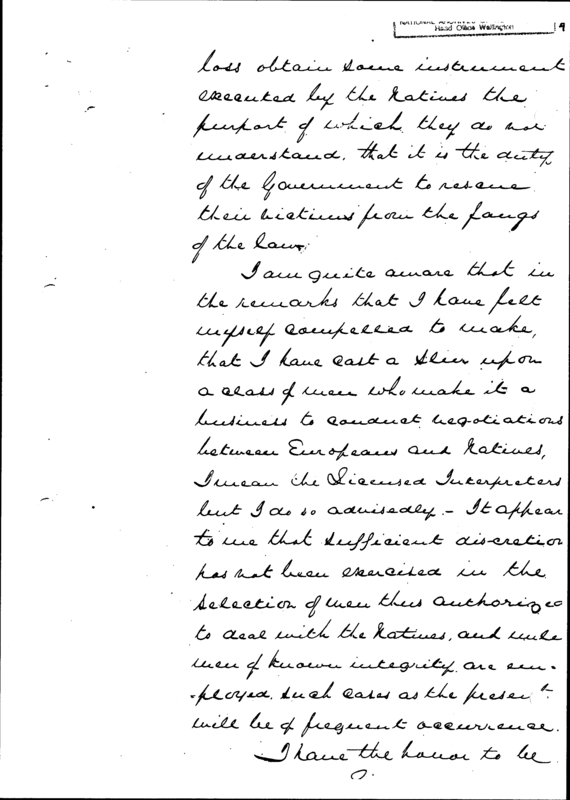 Head Office Wellington
loss obtain some instrument
executed by the Natives the
purport of which they do not
understand, that it is the duty
of the Government to rescue
their victims from the fangs
of the law.
I am quite aware that in
the remarks that I have felt
myself compelled to make,
that I have cast a slur upon
a class of men who make it a
business to conduct negotiations
between Europeans and Natives,
I mean the Licensed Interpreters
but I do so advisedly - It appear
to me that sufficient discretion
has not been exercised in the
selection of men thus authorized
to deal with the Natives, and unle
men of known integrity are em-
-ployed such cases as the present
will be of frequent occurrence.
I have the honor to be